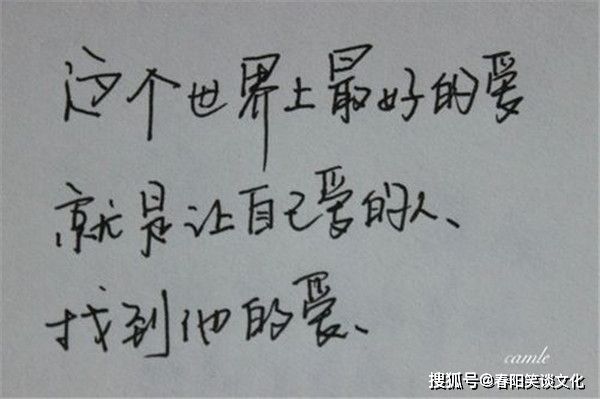 这个世界上最好的爱
就是让自己爱的人、
找到他的爱、
camle
搜狐号@春阳笑谈文化